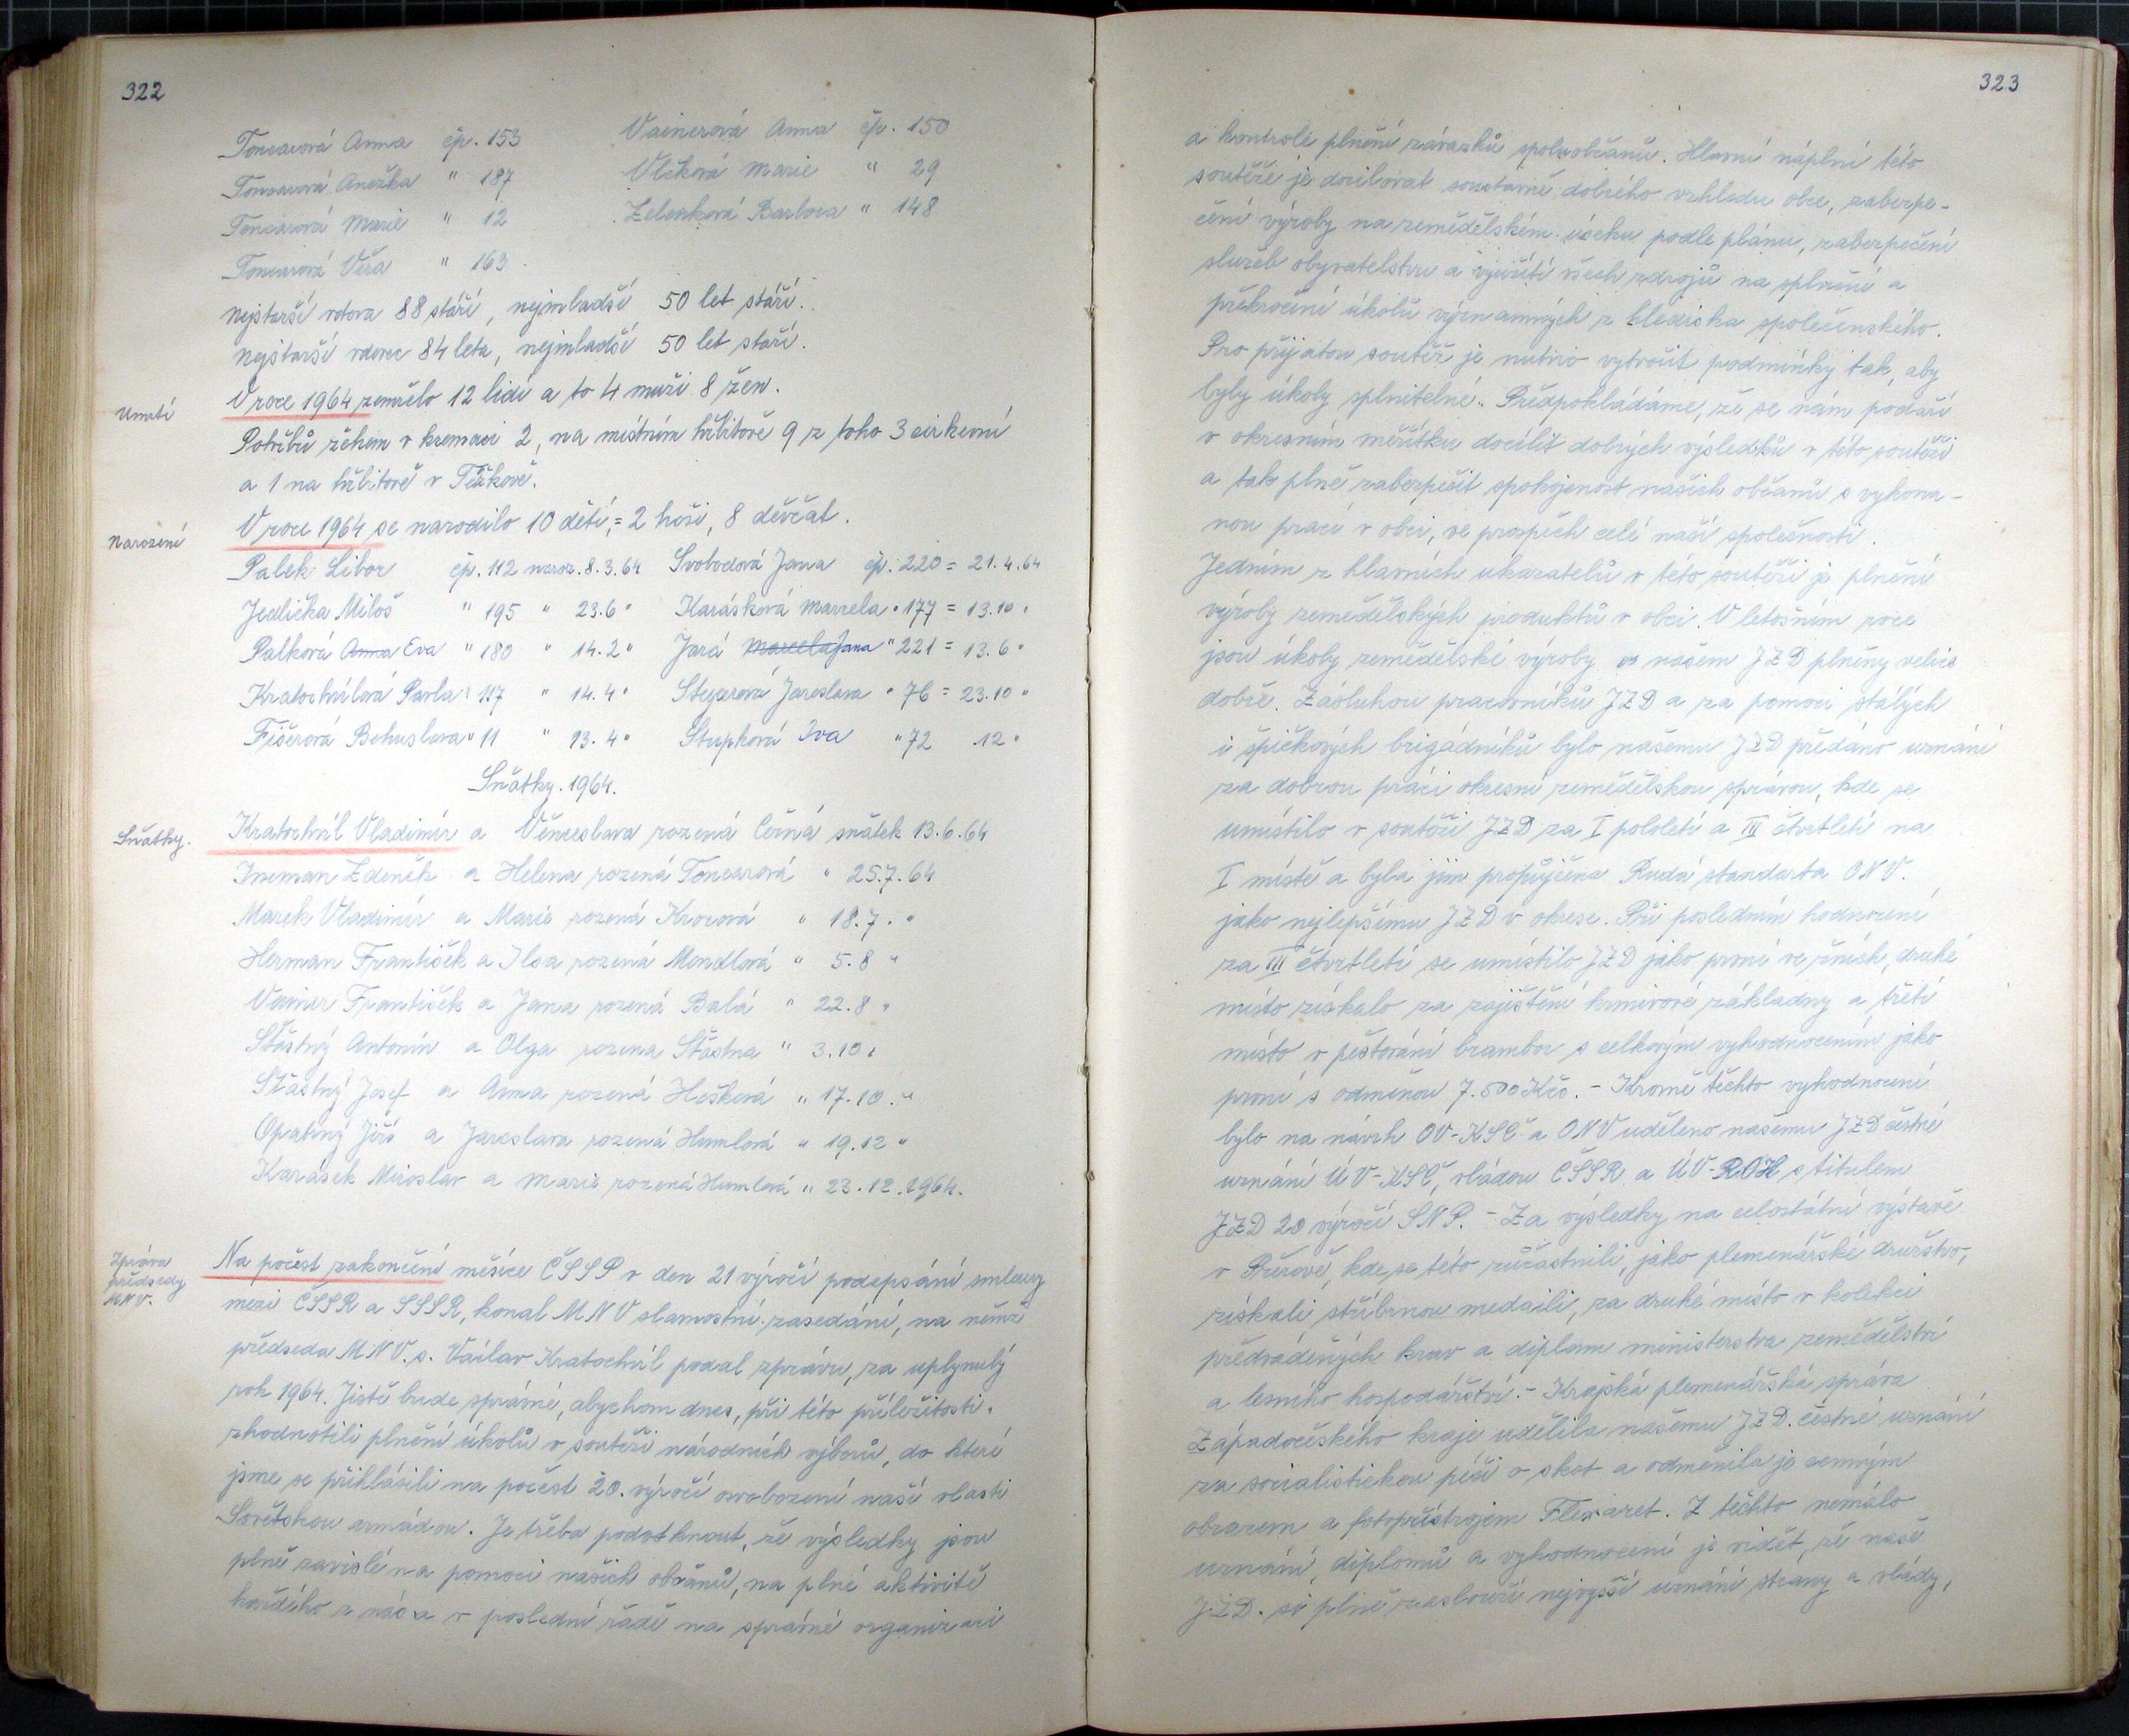 322
Toncarová Anna čp. 153 Vainerová Anna čp. 150
Toncarová Anežka " 187 Vlčková Marie " 29
Toncarová Marie " 12 Zelenková Barbora " 148
Toncarová Věra " 163
nejstarší vdova 88 stáří, nejmladší 50 let stáří.
nejstarší vdovec 84 leta, nejmladší 50 let stáří.
Umrtí
V roce 1964 zemřelo 12 lidí a to 4 muži 8 žen.
Pohřbů žehem v kremaci 2, na místním hřbitově 9 z toho 3 církevní
a 1 na hřbitově v Těškově.
Narození
V roce 1964 se narodilo 10 dětí, = 2 hoši, 8 děvčat.
Palek Libor čp. 112 naroz. 8.3.64 Svobodová Jana čp. 220 = 21.4.64
Jedlička Miloš " 195 " 23.6 " Karásková Marcela " 177 = 13.10 "
Palková Anna Eva " 180 " 14.2 " Jará Marcela Jana " 221 = 13.6 "
Kratochvílová Pavla " 117 " 14.4 " Stegerová Jaroslava " 76 = 23.10 "
Fišerová Bohuslava " 11 " 13.4 " Stupková Iva " 72 12 "
Sňatky. 1964.
Sňatky.
Kratochvíl Vladimír a Věnceslava rozená Černá sňatek 13.6.64
Zdeněk a Helena rozená Toncarová " 25.7.64
Marek Vladimír a Marie rozená Krocová " 18.7. "
Herman František a Ilsa rozená Mondlová " 5.8 "
Vainer František a Jana rozená Balá " 22.8 "
Šťastný Antonín a Olga rozena Šťastna " 3.10 "
Šťastný Josef a Anna rozená Hošková " 17.10. "
Opatrný Jiří a Jaroslava rozená Humlová " 19.12 "
Karásek Miroslav a Marie rozená Humlová " 23.12.1964.
Zpráva
předsedy
MNV.
Na počest zakončení měsíce ČSSP v den 21 výročí podepsání smlouvy
mezi ČSSR a SSSR, konal MNV slavnostní zasedání, na němž
předseda MNV. s. Václav Kratochvíl podal zprávu, za uplynulý
rok 1964. Jistě bude správné, abychom dnes, při této příležitosti.
zhodnotili plnění úkolů v soutěži národních výborů, do které
jsme se přihlásili na počest 20. výročí osvobození naší vlasti
Sovětskou armádou. Je třeba podotknout, že výsledky jsou
plně zavislé na pomoci našich občanů, na plné aktivitě
každého z nás a v poslední řadě na správné organizaci
323
a kontrole plnění závazků spoluobčanů. Hlavní náplní této
soutěže je docilovat soustavně dobrého vzhledu obce, zabezpe-
čení výroby na zemědělském úseku podle plánu, zabezpečení
služeb obyvatelstvu a využití všech zdrojů na splnění a
překročení úkolů významných z hlediska společenského.
Pro přijatou soutěž je nutno vytvořit podmínky tak, aby
byly úkoly splnitelné. Předpokládáme, že se nám podaří
v okresním měřítku docílit dobrých výsledků v této soutěži
a tak plně zabezpečit spokojenost našich občanů s vykona-
nou prací v obci, ve prospěch celé naší společnosti.
Jedním z hlavních ukazatelů v této soutěži je plnění
výroby zemědělských produktů v obci. V letošním roce
jsou úkoly zemědělské výroby ve našem JZD plněny velice
dobře. Zásluhou pracovníků JZD a za pomoci stálých
i špičkových brigádníků bylo našemu JZD předáno uznání
za dobrou práci okresní zemědělskou správou, kde se
umístilo v soutěži JZD za I pololetí a III čtvrtletí na
I místě a byla jim propůjčena Rudá standarta ONV.
jako nejlepšímu JZD v okrese. Při posledním hodnocení
za III čtvrtletí se umístilo JZD jako první ve žních, druhé
místo získalo za zajištění krmivové základny a třetí
místo v pěstování brambor s celkovým vyhodnocením jako
první s odměnou 7.500 Kčs. - Kromě těchto vyhodnocení
bylo na návrh OV-KSČ a ONV uděleno našemu JZD čestné
uznání ÚV-KSČ, vládou ČSSR a ÚV-ROH s titulem
JZD 20 výročí SNP. - Za výsledky na celostátní výstavě
v Přerově, kde se této zúčastnili, jako plemenářské družstvo,
získali stříbrnou medaili, za druhé místo v kolekci
předváděných krav a diplom ministerstva zemědělství
a lesního hospodářství. - Krajská plemenářská správa
Západočeského kraje udělila našemu JZD. čestné uznání
za socialistickou péči o skot a odměnila je cenným
obrazem a fotopřístrojem Flexaret. Z těchto nemálo
uznání, diplomů a vyhodnocení je vidět, že naše
JZD. si plně zaslouží nejvyšší uznání strany a vlády,